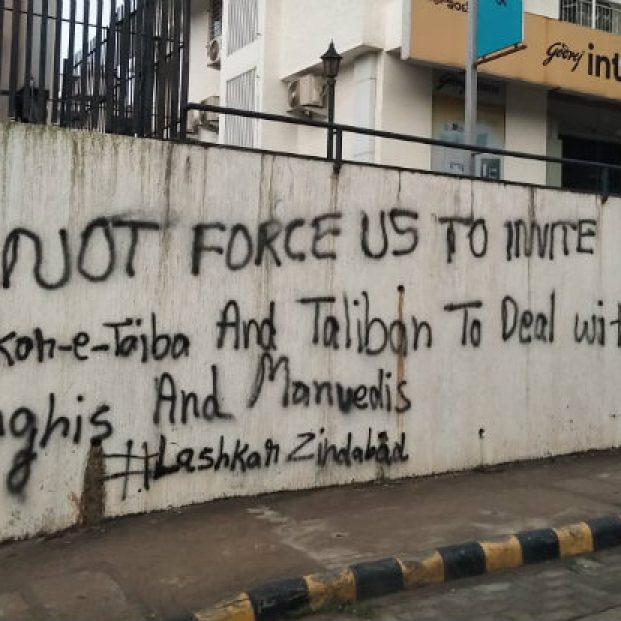 Godrej int
NOT FORCE US TO INVITE
kar-e-Taiba And Taliban To Deal wit
nghis And Manvedis
#Lashkar Zindabad